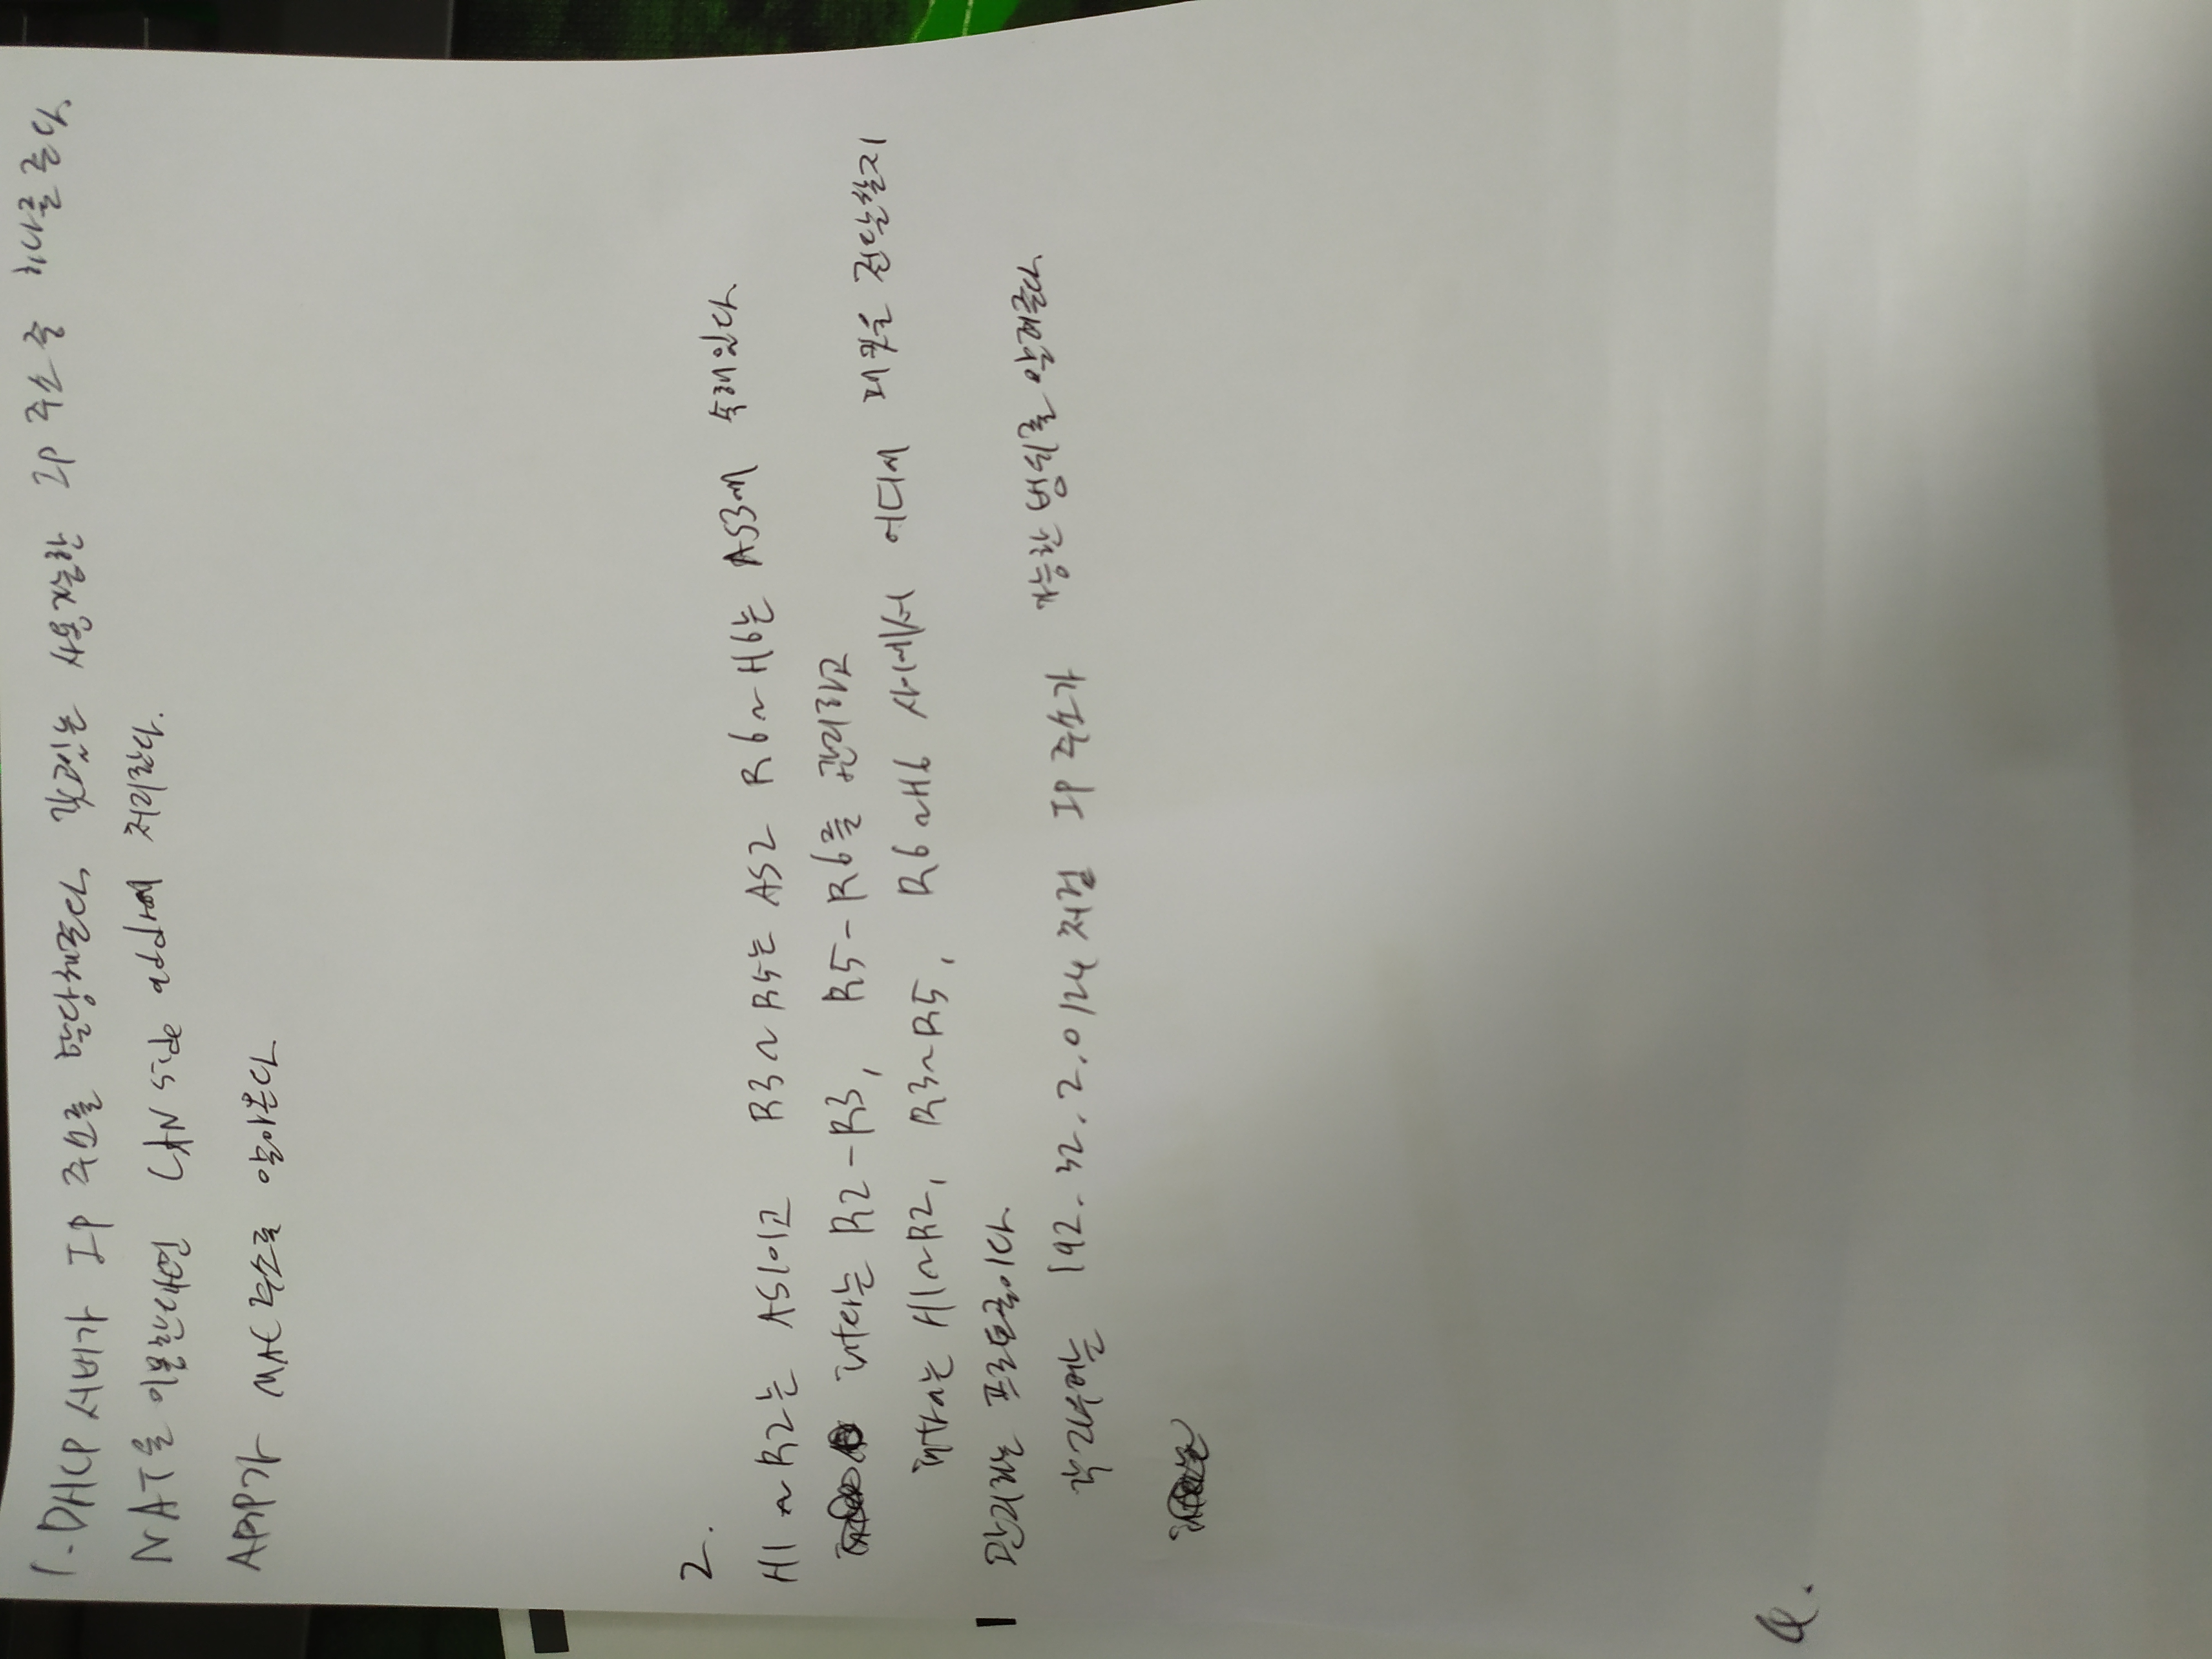 1. DHCP 서버가 IP 주소를 할당해준다. 갖고있는 사용가능한 IP 주소 중 하나를 준다.
NAT을 이용한다면 LAN side addr에 처리한다.
ARP가 MAC 주소를 알아온다
2.
H1 ~ R2는 AS1이고 R3 ~ R5는 AS2 R6 ~ H6는 AS3에 속해있다.
R2 - R3, R5 - R6를 관리하고
H1 ~ R2, R3 ~ R5, R6 ~ H6 사이에서 어디에 패킷을 전달할지
관리하는 프로토콜이다.
각 라우터는 192.32.2.0/24 처럼 IP 주소가 가능한 범위를 알려준다.
4.